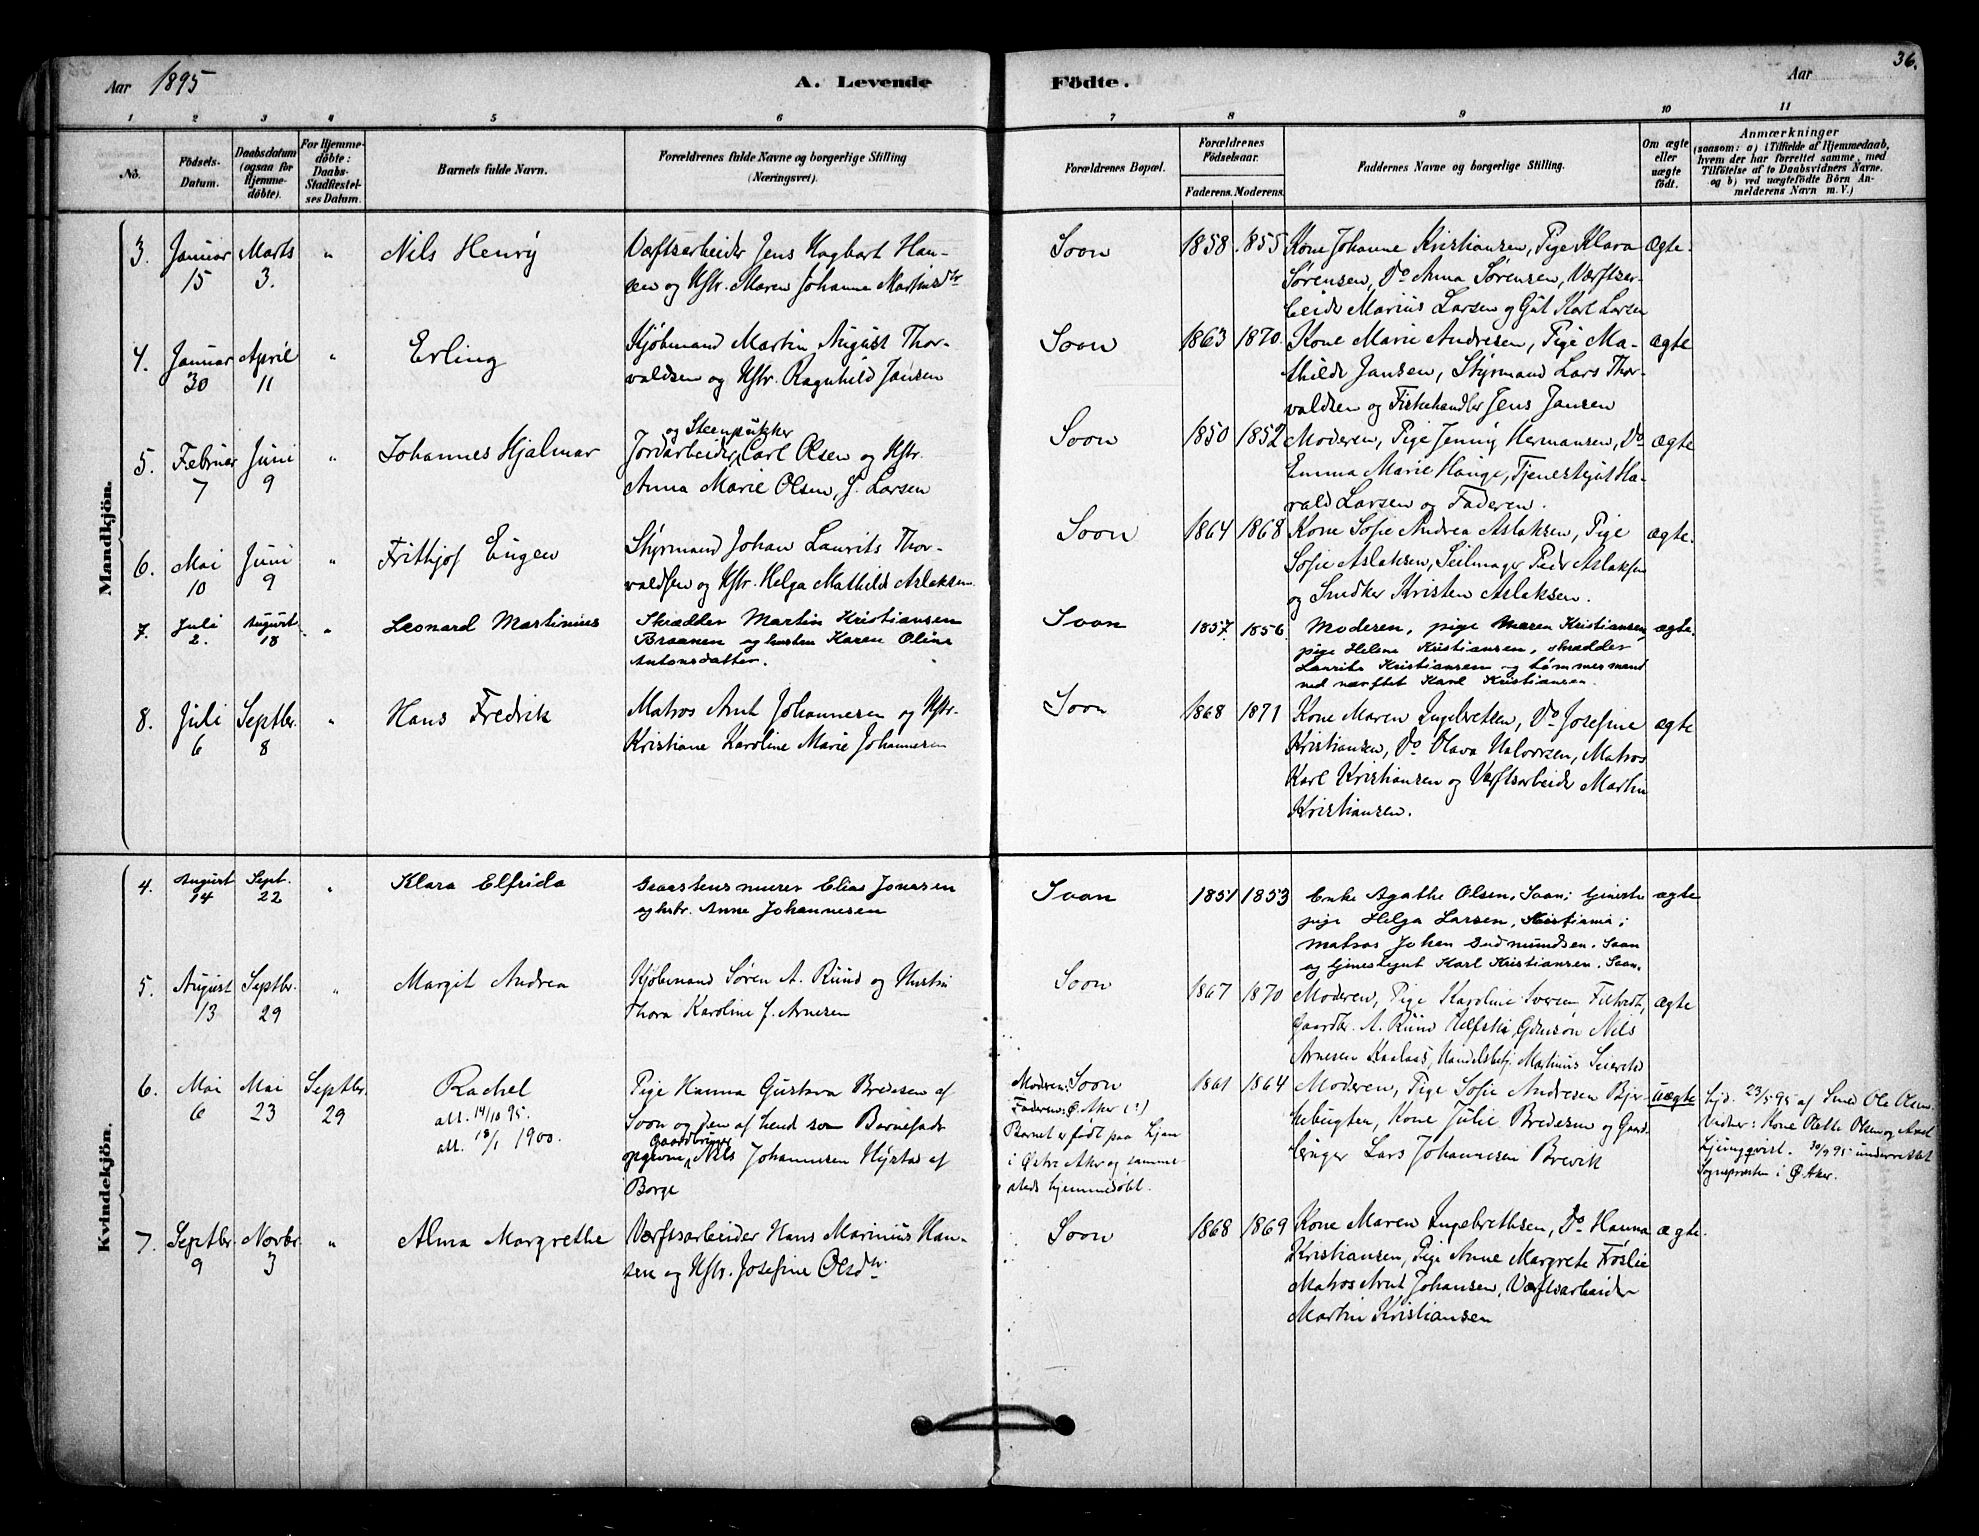 Aar 1895
A. Levende
Födte.
Aar
36.
1
2
3
4
5
6
7
8
9
10
11
No.
Födsels-
Datum.
Daabsdatum
(ogsaa for
Hjemme-
döbte).
For Hjemme-
döbte:
Daabs-
Stadfæstel-
ses Datum.
Barnets fulde Navn.
Forældrenes fulde Navne og borgerlige Stilling
(Næringsvei).
Forældrenes Bopæl.
Forældrenes
Födselsaar.
Faderens.
Moderens.
Faddernes Navne og borgerlige Stilling.
Om ægte
eller
uægte
født.
Anmærkninger
(saasom: a) i Tilfælde af Hjemmedaab,
hvem der har forrettet samme, med
Tilföielse af to Daabsvidners Navne.
og b) ved uægtefödte Börn An-
melderens Navn m. V.)
Mandkjön.
3.
Januar
15
Marts
3.
"
Nils Henry
Værftsarbeider Jens Hagbart Han-
sen og Hstr. Maren Johanne Martinsdtr
Soon
1858.
1855
Kone Johanne Kristiansen, Pige Klara
Sørensen, Do Anna Sørensen, Værftsar-
beider Marius Larsen og Gut Karl Larsen
Ægte.
4.
Januar
30
April
11
"
Erling
Kjøbmand Martin August Thor-
valdsen og Hstr. Ragnhild Jansen
Soon
1863
1870.
Kone Marie Andresen, Pige Ma-
thilde Jansen, Styrmand Lars Thor-
valdsen og Fiskehandler Jens Jansen
ægte
5.
Februar
7
Juni
9
"
Johannes Hjalmar
og Steenpukker
Jordarbeider Carl Olsen og Hstr.
Anna Marie Olsen, f. Larsen
Soon
1850
1852
Moderen, Pige Jenny Hermansen, Do
Emma Marie Hauge, Tjenestegut Ha-
rald Larsen og Faderen.
ægte
6.
Mai
10
Juni
9
"
Frithjof Eugen
Styrmand Johan Laurits Thor-
valdsen og Hstr. Helga Mathilde Aslaksen
Soon
1864
1868
Kone Sofie Andrea Aslaksen, Pige
Sofie Aslaksen, Seilmager Peder Aslaksen
og Snedker Kristen Aslaksen.
ægte.
7.
Juli
2.
August
18
"
Leonard Martinius
Skrædder Martin Kristiansen
Braanen og hustru Karen Oline
Antonsdatter.
Soon
1857.
1856
Moderen, pige Maren Kristiansen,
pige Helene Kristiansen, skrædder
Laurits Kristiansen og tømmermand
ved værftet Karl Kristiansen.
ægte.
8.
Juli
6
Septbr.
8
"
Hans Fredrik
Matros Arnt Johannesen og Hstr.
Kristiane Karoline Marie Johannesen
Soon
1868
1871
Kone Maren Ingebretsen, Do Josefine
Kristiansen, Do Olava Halvorsen, Matros
Karl Kristiansen og Værftsarbeider Martin
Kristiansen.
ægte
Kvindekjön.
4.
August
14
Sept.
22
"
Klara Elfrida
Graastensmurer Elias Jonasen
og hstr. Anne Johannesen
Soon
1851
1853
Enke Agathe Olsen, Soon; tjeneste
pige Helga Larsen, Kristiania;
matros Johan Gudmundsen, Soon
og tjenestegut Karl Kristiansen, Soon.
ægte
5.
August
13
Septbr.
29
"
Margit Andrea
Kjøbmand Søren A. Ruud og Hustru
Thora Karoline f. Arnesen
Soon
1867
1870
Moderen, Pige Karoline Iversen
Gaardbr. A. Ruud Nils
Arnesen Handelsbetj. Martinius
ægte
6.
Mai
6
Mai
23
Septbr.
29
Rachel
att. 14/10 95.
att. 18/1 1900.
Pige Hanna Gustava Bredesen af
Soon og den af hende som Barnefader
Gaardbruger
opgivne Nils Johannesen Hyrtas af
Borge
Moderen: Soon
Faderen: Ø. Aker (?)
Barnet er født paa Ljan
i Østre Aker og samme-
steds hjemmedøbt.
1861
1864
Moderen, Pige Sofie Andresen Bjer-
kebugten, Kone Julie Bredesen og Gaard-
bruger Lars Johannesen Brevik
uægte
Hjd. 23/5 95 af Smed Ole Olsen.
Vidner: Kone Olette Olsen og Axel
Ljungqvist. 30/9 95 underrettet
Sognepresten i Ø. Aker.
7.
Septbr.
9
Novbr
3
"
Alma Margrethe
Værftsarbeider Hans Marinius Han-
sen og Hstr. Josefine Olsdtr.
Soon
1868
1869
Kone Maren Ingebrethsen, Do Hanna
Kristiansen, Pige Anne Margrete Frøslie
Matros Arnt Johansen, Værftsarbeider
Martin Kristiansen
ægte.